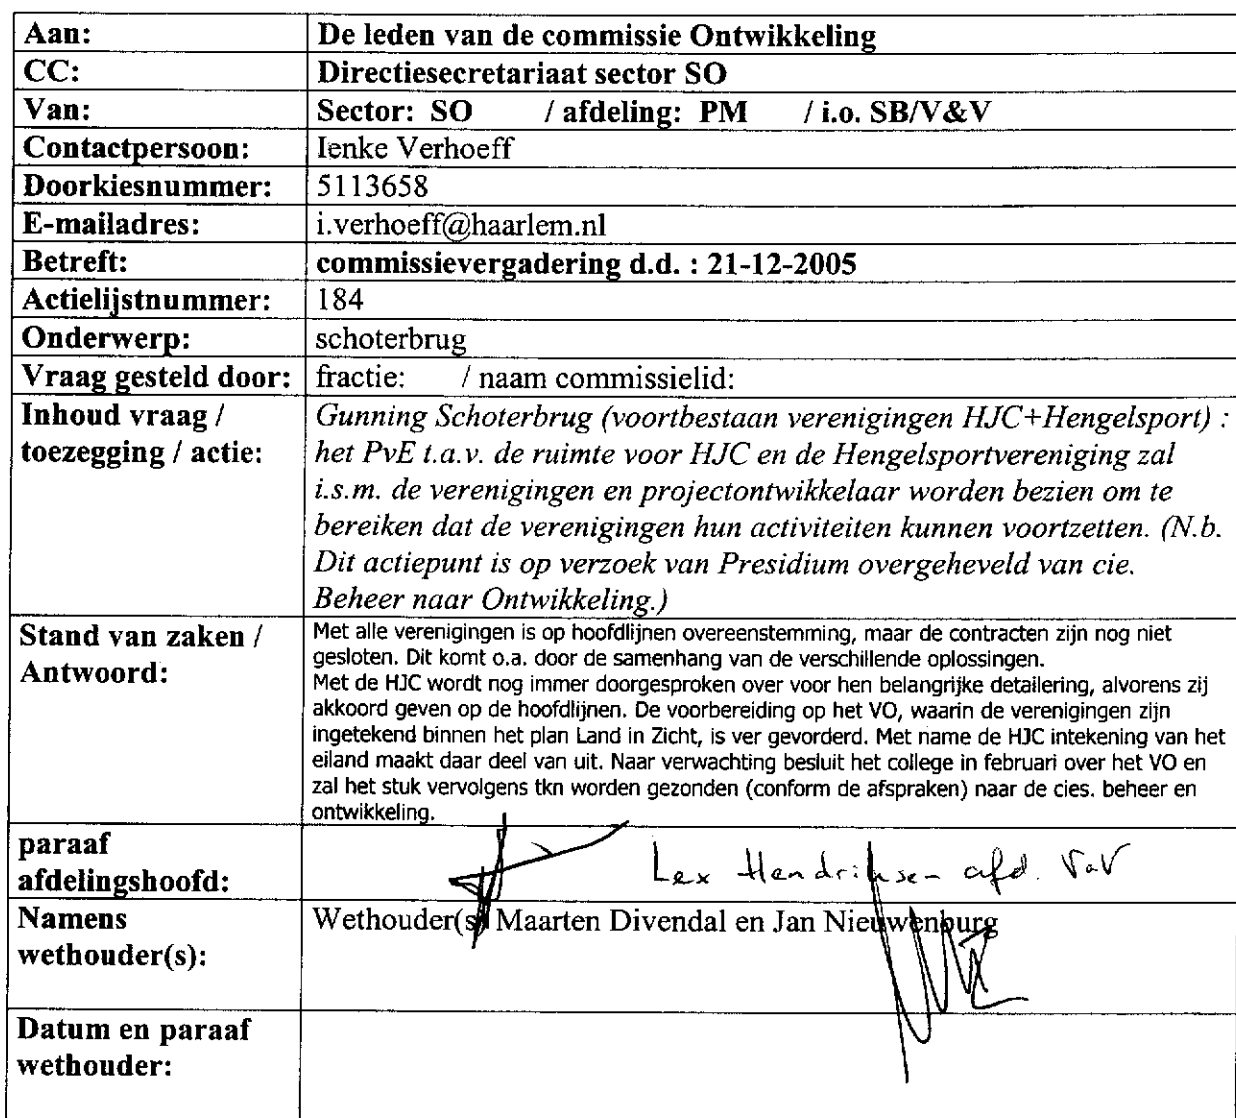 Aan: De leden van de commissie Ontwikkeling
CC: Directiesecretariaat sector SO
Van: Sector: SO / afdeling: PM / i.o. SB/V&V
Contactpersoon: Ienke Verhoeff
Doorkiesnummer: 5113658
E-mailadres: i.verhoeff@haarlem.nl
Betreft: commissievergadering d.d. : 21-12-2005
Actielijstnummer: 184
Onderwerp: schoterbrug
Vraag gesteld door: fractie: / naam commissielid:
Inhoud vraag /
toezegging / actie:
Gunning Schoterbrug (voortbestaan verenigingen HJC+Hengelsport) :
het PvE t.a.v. de ruimte voor HJC en de Hengelsportvereniging zal
i.s.m. de verenigingen en projectontwikkelaar worden bezien om te
bereiken dat de verenigingen hun activiteiten kunnen voortzetten. (N.b.
Dit actiepunt is op verzoek van Presidium overgeheveld van cie.
Beheer naar Ontwikkeling.)
Stand van zaken /
Antwoord:
Met alle verenigingen is op hoofdlijnen overeenstemming, maar de contracten zijn nog niet
gesloten. Dit komt o.a. door de samenhang van de verschillende oplossingen.
Met de HJC wordt nog immer doorgesproken over voor hen belangrijke detailering, alvorens zij
akkoord geven op de hoofdlijnen. De voorbereiding op het VO, waarin de verenigingen zijn
ingetekend binnen het plan Land in Zicht, is ver gevorderd. Met name de HJC intekening van het
eiland maakt daar deel van uit. Naar verwachting besluit het college in februari over het VO en
zal het stuk vervolgens tkn worden gezonden (conform de afspraken) naar de cies. beheer en
ontwikkeling.
paraaf
afdelingshoofd:
Lex Hendriksen afd. VaV
Namens
wethouder(s):
Wethouder(s) Maarten Divendal en Jan Nieuwenburg
Datum en paraaf
wethouder: